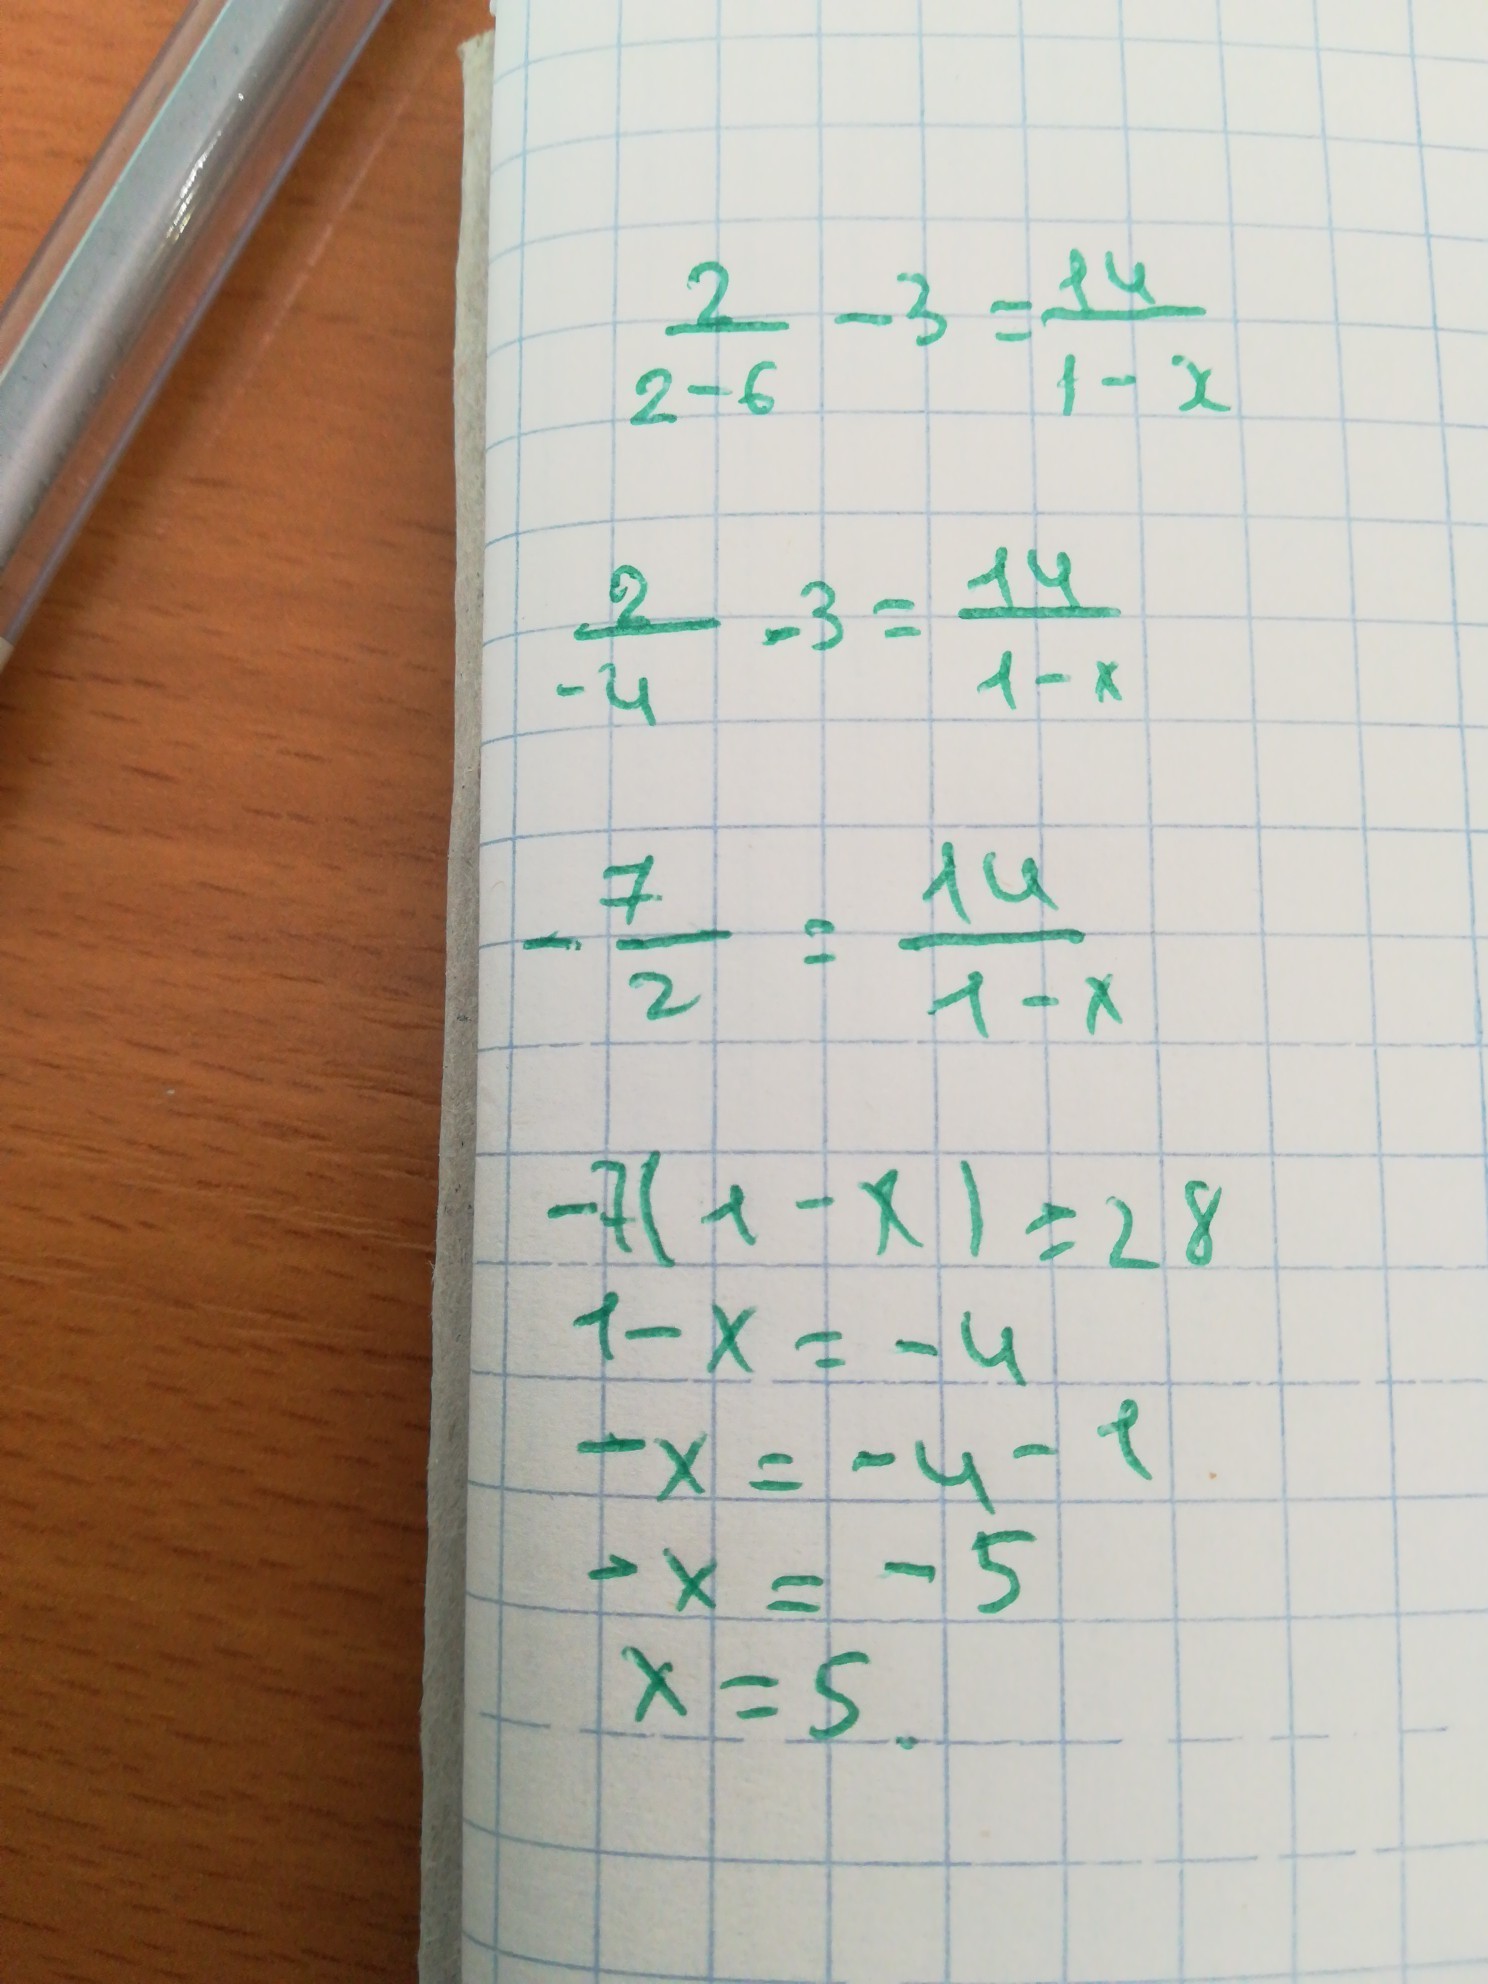 2/(2-6) - 3 = 14/(1-x)
2/(-4) - 3 = 14/(1-x)
- 7/2 = 14/(1-x)
-7(1-x) = 28
1-x = -4
-x = -4-1
-x = -5
x = 5.